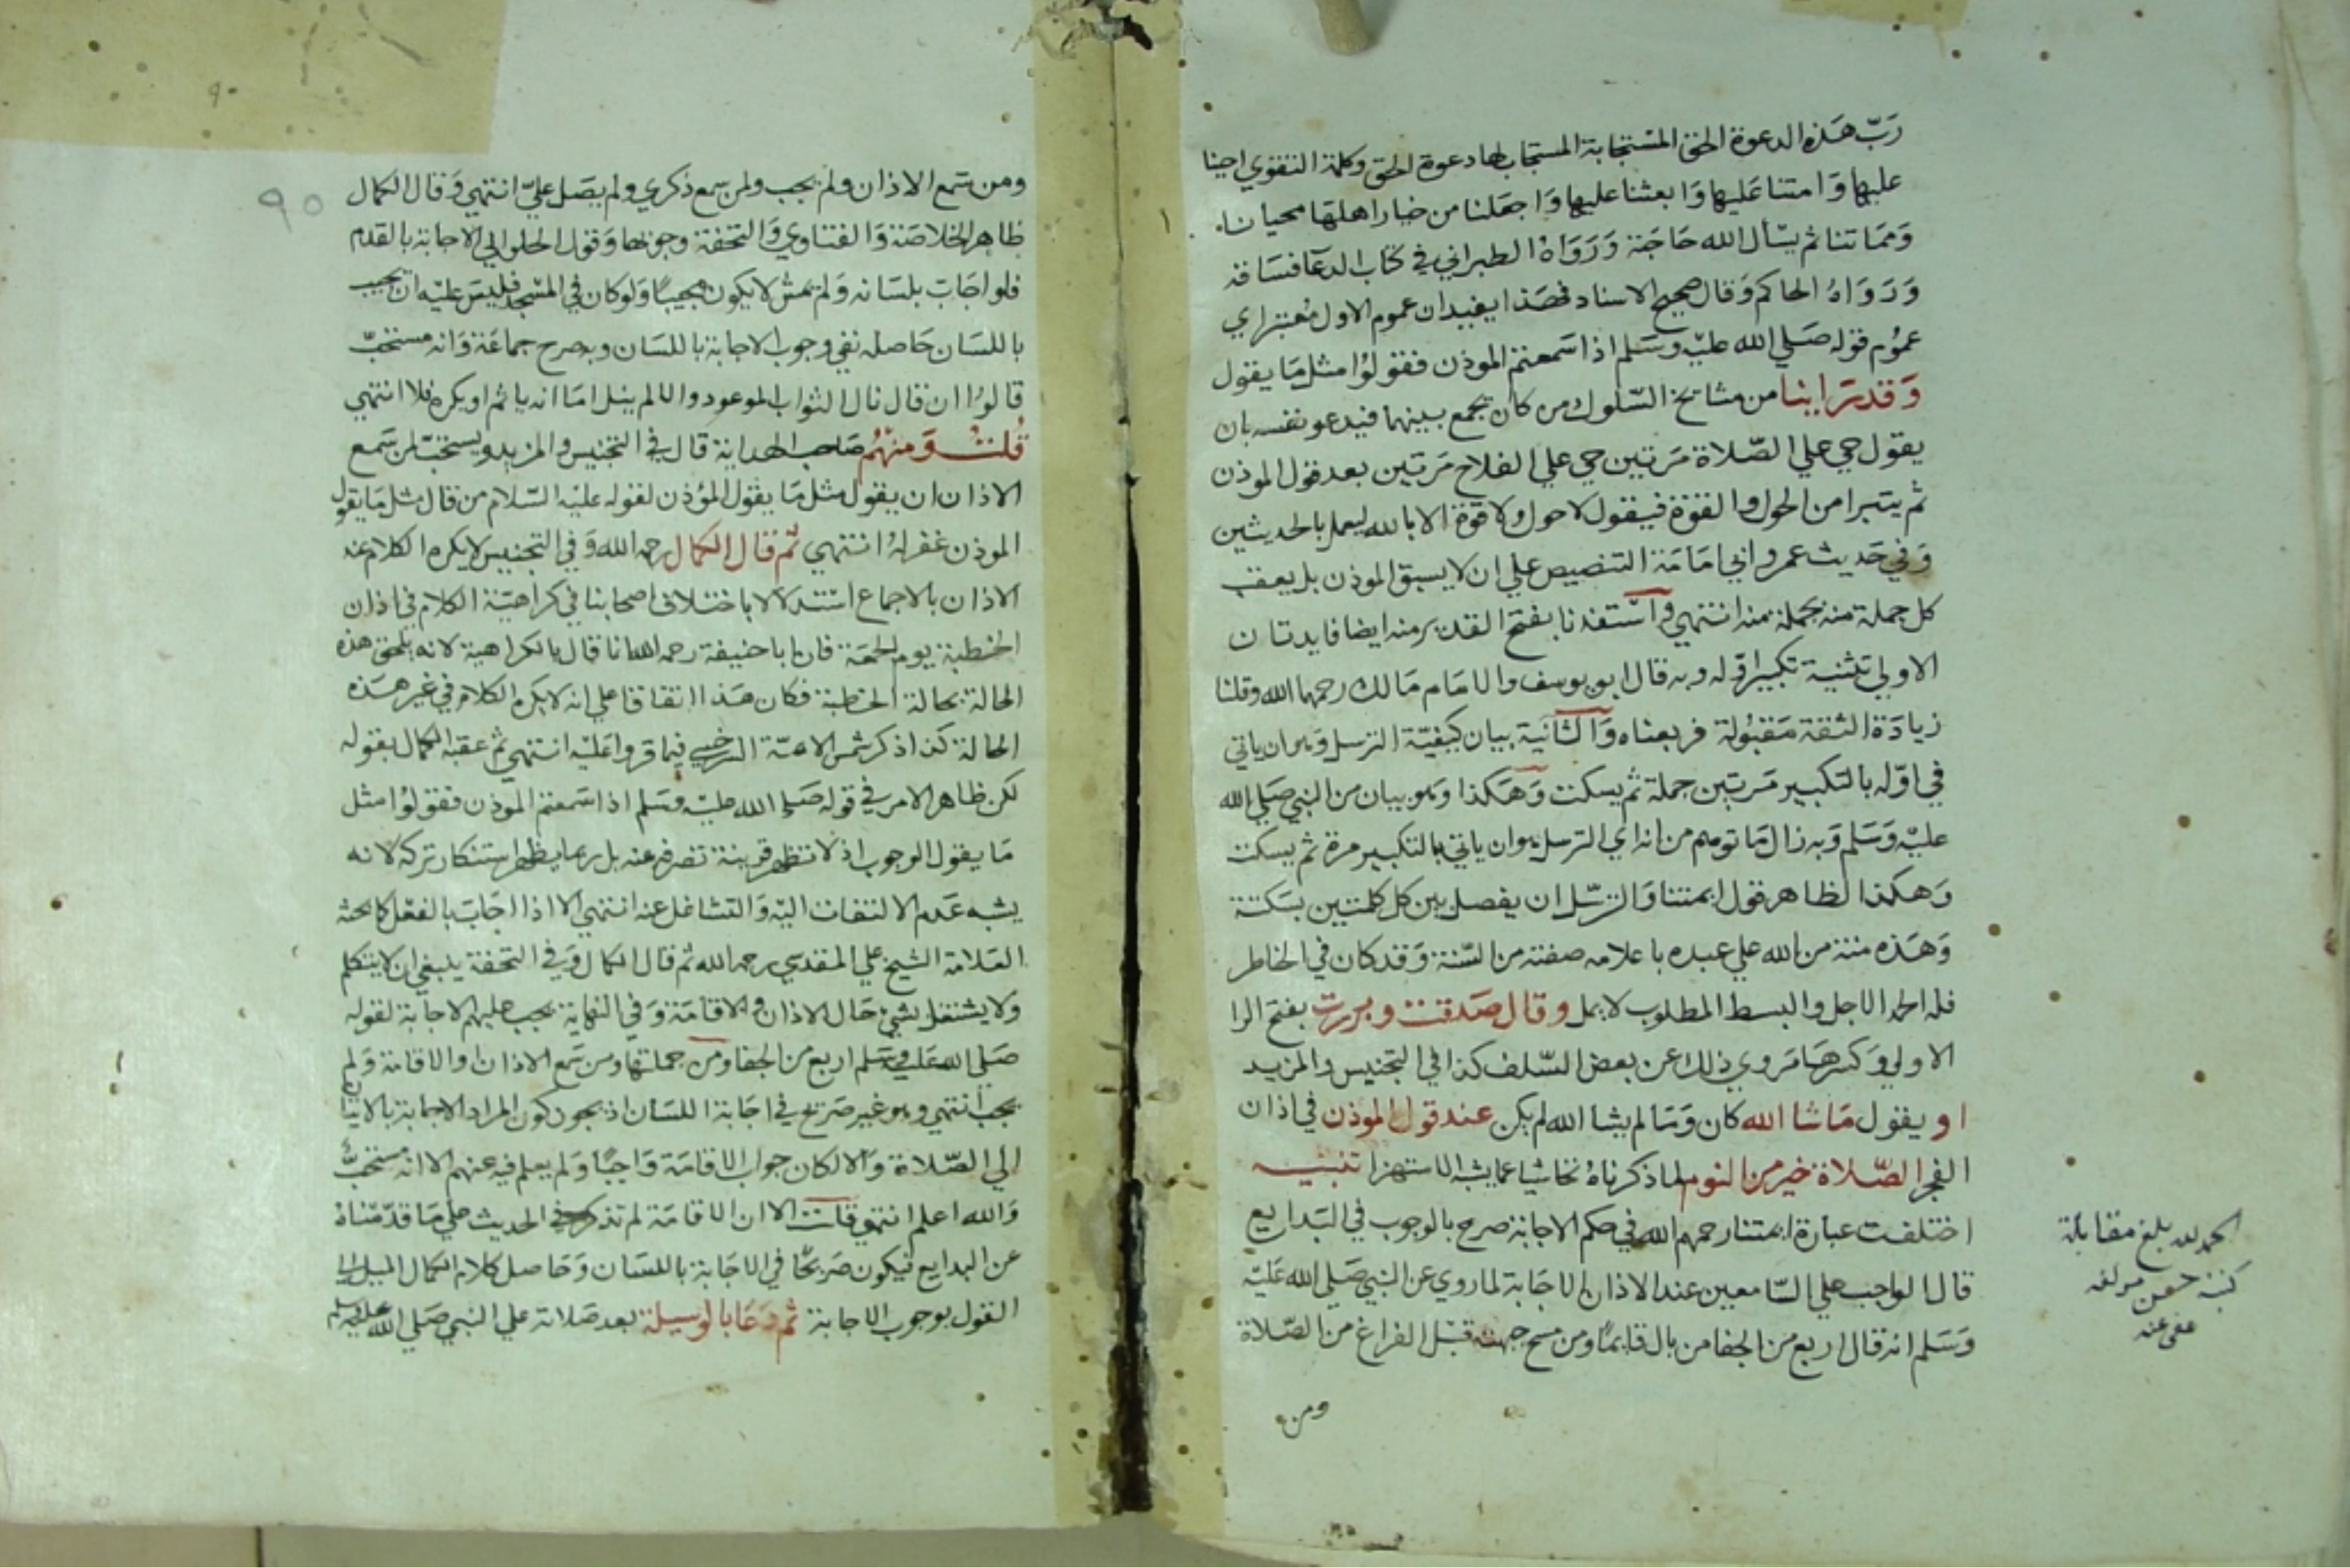 رب هذه الدعوة الحق المستجابة المستجاب لها دعوة الحق وكلمة التقوي احينا
عليها وامتنا عليها وابعثنا عليها واجعلنا من خيار اهلها محيانا
ومماتنا ثم يسأل الله حاجة ورواه الطبراني في كتاب الدعا فساقه
ورواه الحاكم وقال صحيح الاسناد فهذا يفيد ان عموم الاول معتبر اي
عموم قوله صلي الله عليه وسلم اذا سمعتم الموذن فقولوا مثل ما يقول
وقد راينا من مشايخ السلوك من كان يجمع بينهما فيدعو نفسه بان
يقول حي علي الصلاة مرتين حي علي الفلاح مرتين بعد قول الموذن
ثم يتبرا من الحول والقوة فيقول لا حول ولا قوة الا بالله ليعمل بالحديثين
وفي حديث عمر وابي امامة التنصيص علي ان لا يسبق الموذن بل يعقب
كل جملة منه بجملة منه انتهي واستفدنا بفتح القدير منه ايضا فايدتان
الاولي تثنية تكبير اوله وبه قال ابو يوسف والامام مالك رحمهما الله وقلنا
زيادة الثقة مقبولة فربعناه والثانية بيان كيفية الترسل وهو ان ياتي
في اوله بالتكبير مرتين جملة ثم يسكت وهكذا وهو بيان من النبي صلي الله
عليه وسلم وبه زال ما توهم من انه اي الترسل هو ان ياتي بالتكبير مرة ثم يسكت
وهكذا لظاهر قول ايمتنا والترسل ان يفصل بين كل كلمتين بسكتة
وهذه منة من الله علي عبده باعلامه صفته من السنة وقد كان في الخاطر
فله الحمد الاجل والبسط المطلوب لا يمل وقال صدقت وبررت بفتح الرا
الاولي وكسرها مروي ذلك عن بعض السلف كذا في التجنيس والمزيد
او يقول ما شا الله كان وما لم يشا الله لم يكن عند قول الموذن في اذان
الفجر الصلاة خير من النوم لما ذكرناه تحاشيا عما يشبه الاستهزا تنبيه
اختلفت عبارة ايمتنا رحمهم الله في حكم الاجابة صرح بالوجوب في البدايع
قال الواجب علي السامعين عند الاذان الاجابة لما روي عن النبي صلي الله عليه
وسلم انه قال اربع من الجفا من بال قايما ومن مسح جبهته قبل الفراغ من الصلاة
ومن
الحمد لله بلغ مقابلة
كتبه حسن مولفه
عفي عنه
٩٥
ومن سمع الاذان ولم يجب ولمن سمع ذكري ولم يصل علي انتهي وقال الكمال
ظاهر الخلاصة والفتاوي والتحفة وجوبها وقول الحلواني الاجابة بالقدم
فلو اجاب بلسانه ولم يمش لا يكون مجيبا ولو كان في المسجد فليس عليه ان يجيب
باللسان حاصله نفي وجوب الاجابة باللسان وبه صرح جماعة وانه مستحب
قالوا ان قال نال الثواب الموعود والا لم ينل اما انه ياثم او يكره فلا انتهي
قلت ومنهم صاحب الهداية قال في التجنيس والمزيد ويستحب لمن سمع
الاذان ان يقول مثل ما يقول المؤذن لقوله عليه السلام من قال مثل ما يقول
الموذن غفر له انتهي ثم قال الكمال رحمه الله وفي التجنيس لا يكره الكلام عند
الاذان بالاجماع استدلالا باختلاف اصحابنا في كراهية الكلام في اذان
الخطبة يوم الجمعة فان ابا حنيفة رحمه الله انا قال بالكراهية لانه يلحق هذه
الحالة بحالة الخطبة فكان هذا اتفاقا علي انه لا يكره الكلام في غير هذه
الحالة كذا ذكر شمس الايمة السرخسي فيما قروا عليه انتهي ثم عقبه الكمال بقوله
لكن ظاهر الامر في قوله صلي الله عليه وسلم اذا سمعتم الموذن فقولوا مثل
ما يقول الوجوب اذ لا تظهر قرينة تصرفه عنه بل ربما يظهر استنكار تركه لانه
يشبه عدم الالتفات اليه والتشاغل عنه انتهي الا اذا اجاب بالفعل كما بحثه
العلامة الشيخ علي المقدسي رحمه الله ثم قال الكمال وفي التحفة ينبغي ان لا يتكلم
ولا يشتغل بشي حال الاذان والاقامة وفي النهاية يجب عليهم الاجابة لقوله
صلي الله عليه وسلم اربع من الجفا ومن جملتها ومن سمع الاذان او الاقامة ولم
يجب انتهي وهو غير صريح في اجابة اللسان اذ يجوز كون المراد الاجابة بالاتيان
الي الصلاة والا لكان جواب الاقامة واجبا ولم يعلم فيه عنهم الا انه مستحب
والله اعلم انتهي قلت الا ان الاقامة لم تذكر في الحديث علي ما قدمناه
عن البدايع فيكون صريحا في الاجابة باللسان وحاصل كلام الكمال الميل الي
القول بوجوب الاجابة ثم دعا بالوسيلة بعد صلاته علي النبي صلي الله عليه وسلم